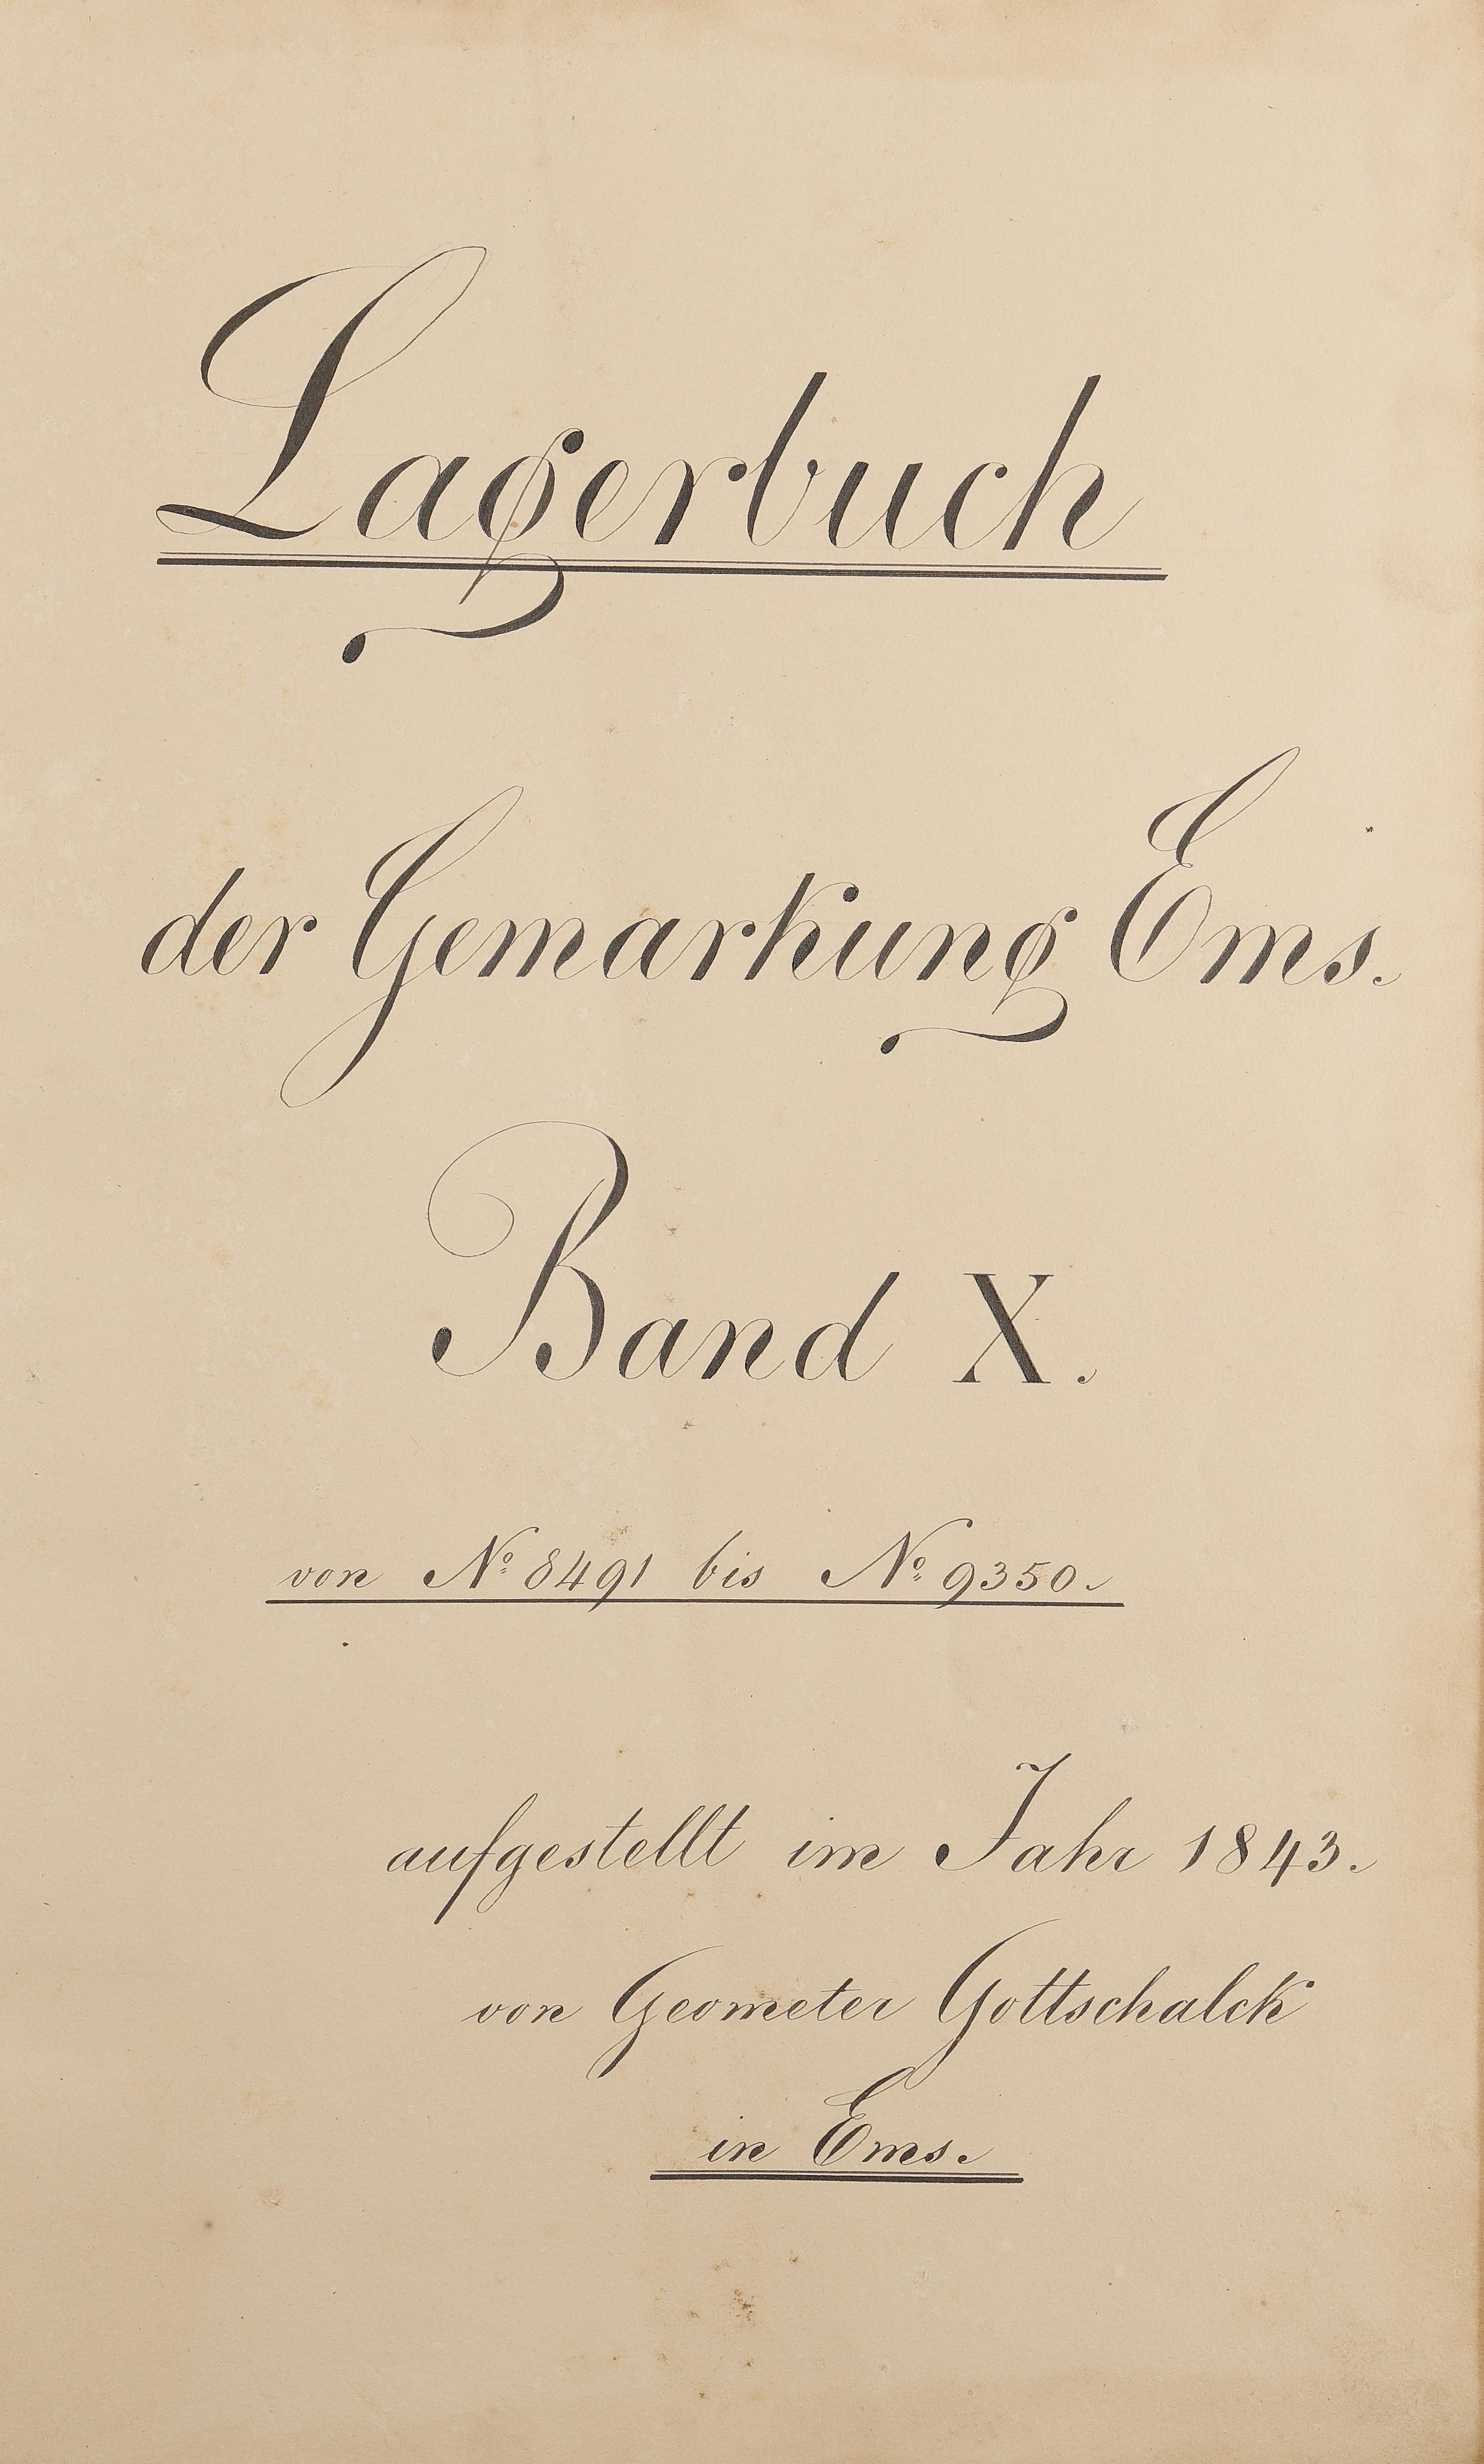 Lagerbuch
der Gemarkung Ems.
Band X.
von № 8491 bis № 9350.
aufgestellt im Jahr 1843.
von Geometer Gottschalck
in Ems.